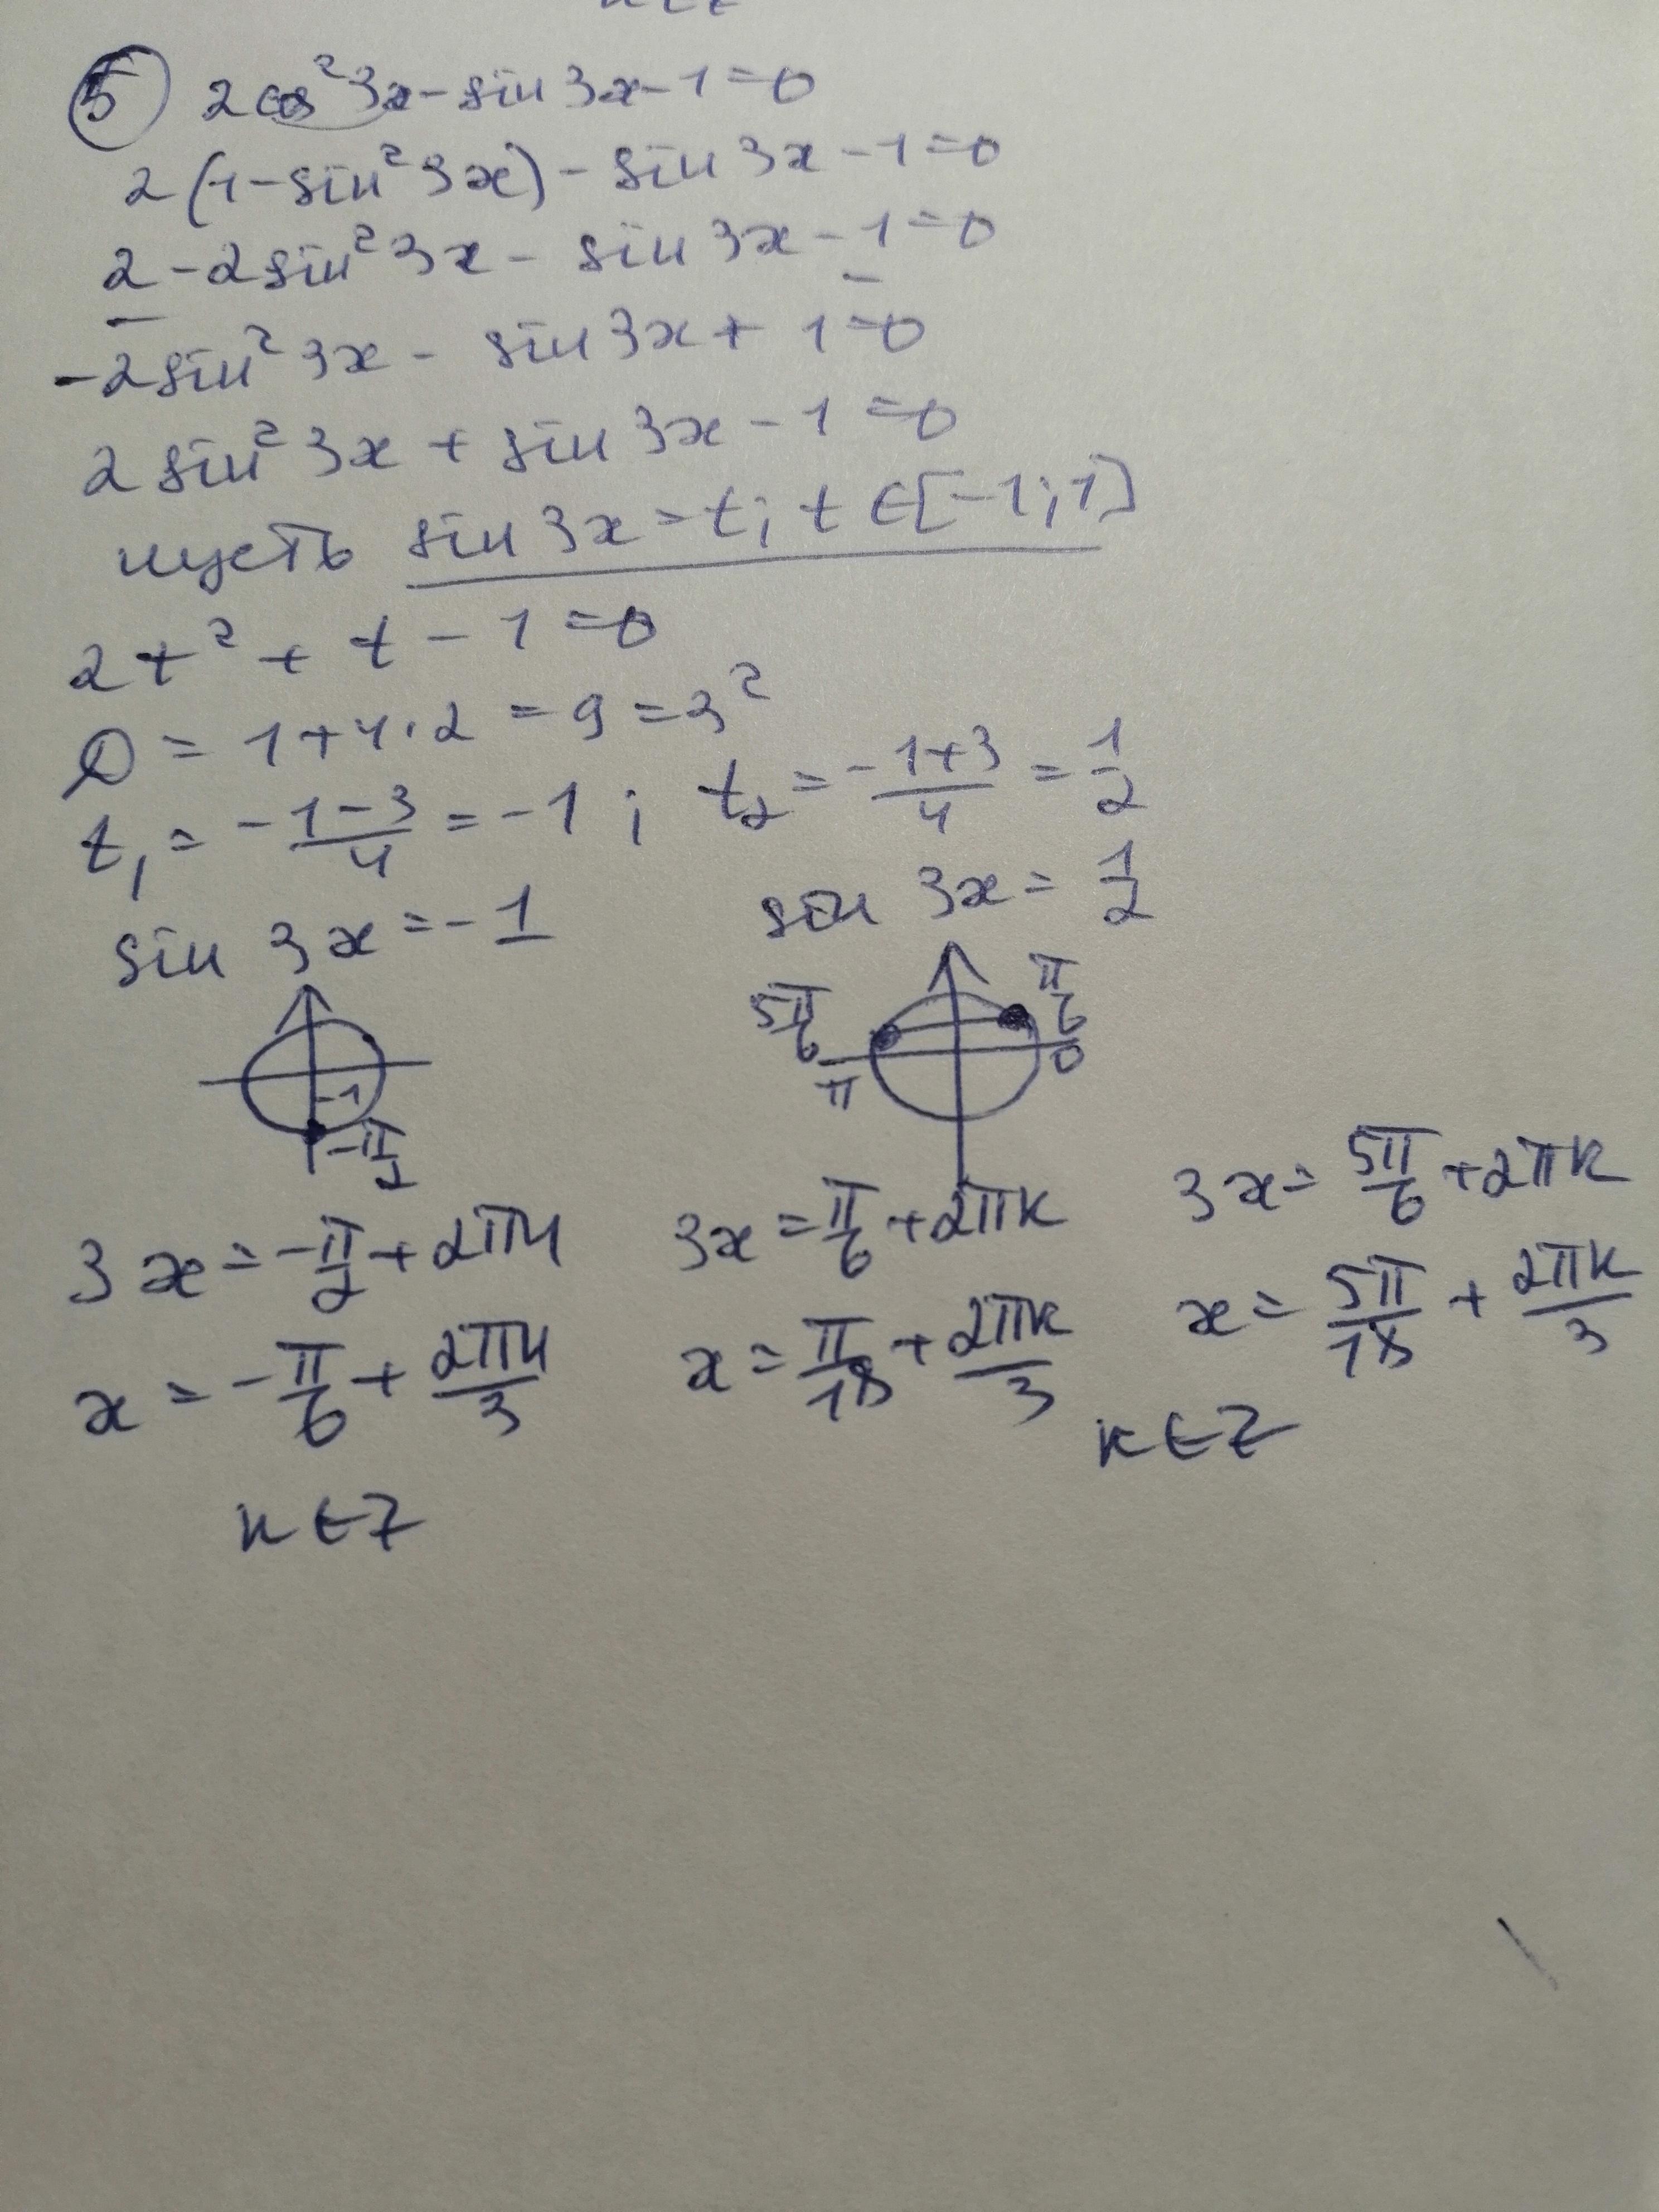 5 2cos²3x-sin3x-1=0
2(1-sin²3x)-sin3x-1=0
2-2sin²3x-sin3x-1=0
-2sin²3x-sin3x+1=0
2sin²3x+sin3x-1=0
пусть sin3x=t; t∈[-1;1]
2t²+t-1=0
D=1+4·2=9=3²
t₁=-1-3/4=-1; t₂=-1+3/4=1/2
sin 3x=-1 sin 3x=1/2
-1 -π/2 5π/6 π/6 π 0
3x=-π/2+2πn 3x=π/6+2πk 3x=5π/6+2πk
x=-π/6+2πn/3 x=π/18+2πk/3 x=5π/18+2πk/3
k∈Z
n∈Z